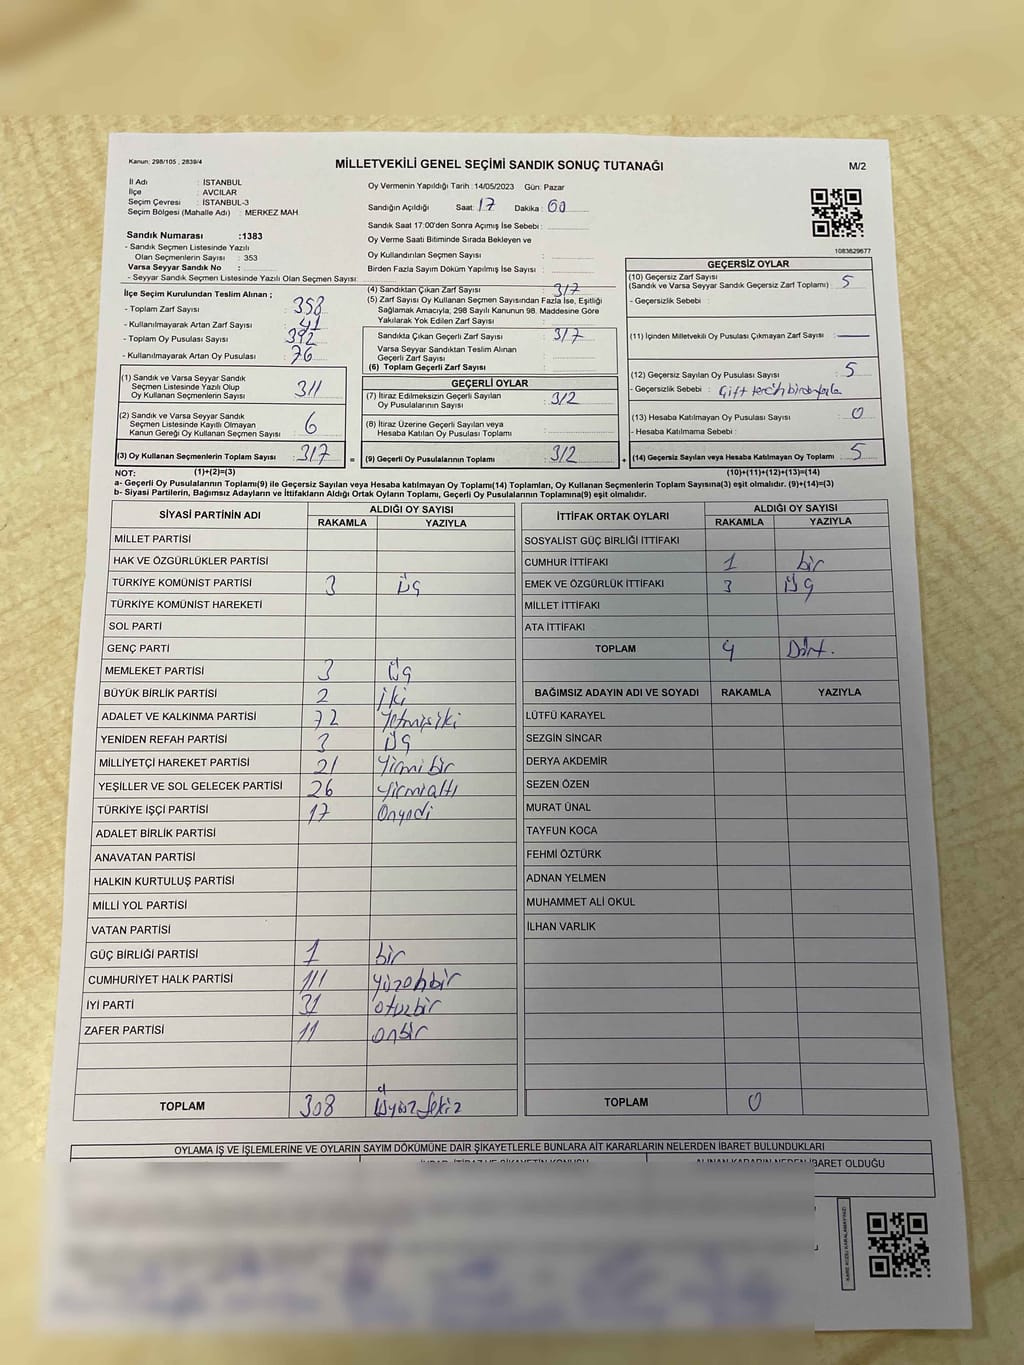 Kanun: 298/105 , 2839/4
MİLLETVEKİLİ GENEL SEÇİMİ SANDIK SONUÇ TUTANAĞI
M/2
İl Adı : İSTANBUL
İlçe : AVCILAR
Seçim Çevresi : İSTANBUL-3
Seçim Bölgesi (Mahalle Adı) : MERKEZ MAH
Oy Vermenin Yapıldığı Tarih :14/05/2023 Gün: Pazar
Sandığın Açıldığı Saat: 17 Dakika: 00
Sandık Saat 17:00'den Sonra Açımış İse Sebebi :
Oy Verme Saati Bitiminde Sırada Bekleyen ve
Oy Kullandırılan Seçmen Sayısı :
Birden Fazla Sayım Döküm Yapılmış İse Sayısı :
1083629677
Sandık Numarası :1383
- Sandık Seçmen Listesinde Yazılı
Olan Seçmenlerin Sayısı : 353
Varsa Seyyar Sandık No :
- Seyyar Sandık Seçmen Listesinde Yazılı Olan Seçmen Sayısı:
İlçe Seçim Kurulundan Teslim Alınan ;
- Toplam Zarf Sayısı : 358
- Kullanılmayarak Artan Zarf Sayısı : 41
- Toplam Oy Pusulası Sayısı : 392
- Kullanılmayarak Artan Oy Pusulası : 76
(1) Sandık ve Varsa Seyyar Sandık
Seçmen Listesinde Yazılı Olup
Oy Kullanan Seçmenlerin Sayısı : 311
(2) Sandık ve Varsa Seyyar Sandık
Seçmen Listesinde Kayıtlı Olmayan
Kanun Gereği Oy Kullanan Seçmen Sayısı : 6
(3) Oy Kullanan Seçmenlerin Toplam Sayısı : 317
(4) Sandıktan Çıkan Zarf Sayısı : 317
(5) Zarf Sayısı Oy Kullanan Seçmen Sayısından Fazla İse, Eşitliği
Sağlamak Amacıyla, 298 Sayılı Kanunun 98. Maddesine Göre
Yakılarak Yok Edilen Zarf Sayısı :
Sandıkta Çıkan Geçerli Zarf Sayısı : 317
Varsa Seyyar Sandıktan Teslim Alınan
Geçerli Zarf Sayısı :
(6) Toplam Geçerli Zarf Sayısı :
GEÇERLİ OYLAR
(7) İtiraz Edilmeksizin Geçerli Sayılan
Oy Pusulalarının Sayısı : 312
(8) İtiraz Üzerine Geçerli Sayılan veya
Hesaba Katılan Oy Pusulası Toplamı :
= (9) Geçerli Oy Pusulalarının Toplamı : 312 +
GEÇERSİZ OYLAR
(10) Geçersiz Zarf Sayısı
(Sandık ve Varsa Seyyar Sandık Geçersiz Zarf Toplamı) : 5
- Geçersizlik Sebebi :
(11) İçinden Milletvekili Oy Pusulası Çıkmayan Zarf Sayısı :
(12) Geçersiz Sayılan Oy Pusulası Sayısı : 5
- Geçersizlik Sebebi : Çift tercih
(13) Hesaba Katılmayan Oy Pusulası Sayısı : 0
- Hesaba Katılmama Sebebi :
(14) Geçersiz Sayılan veya Hesaba Katılmayan Oy Toplamı : 5
NOT: (1)+(2)=(3) (10)+(11)+(12)+(13)=(14)
a- Geçerli Oy Pusulalarının Toplamı(9) ile Geçersiz Sayılan veya Hesaba katılmayan Oy Toplamı(14) Toplamları, Oy Kullanan Seçmenlerin Toplam Sayısına(3) eşit olmalıdır. (9)+(14)=(3)
b- Siyasi Partilerin, Bağımsız Adayların ve İttifakların Aldığı Ortak Oyların Toplamı, Geçerli Oy Pusulalarının Toplamına(9) eşit olmalıdır.
SİYASİ PARTİNİN ADI ALDIĞI OY SAYISI
RAKAMLA YAZIYLA
MİLLET PARTİSİ
HAK VE ÖZGÜRLÜKLER PARTİSİ
TÜRKİYE KOMÜNİST PARTİSİ 3 Üç
TÜRKİYE KOMÜNİST HAREKETİ
SOL PARTİ
GENÇ PARTİ
MEMLEKET PARTİSİ 3 Üç
BÜYÜK BİRLİK PARTİSİ 2 iki
ADALET VE KALKINMA PARTİSİ 72 Yetmişiki
YENİDEN REFAH PARTİSİ 3 Üç
MİLLİYETÇİ HAREKET PARTİSİ 21 Yirmi bir
YEŞİLLER VE SOL GELECEK PARTİSİ 26 Yirmialtı
TÜRKİYE İŞÇİ PARTİSİ 17 Onyedi
ADALET BİRLİK PARTİSİ
ANAVATAN PARTİSİ
HALKIN KURTULUŞ PARTİSİ
MİLLİ YOL PARTİSİ
VATAN PARTİSİ
GÜÇ BİRLİĞİ PARTİSİ 1 bir
CUMHURİYET HALK PARTİSİ 111 yüzonbir
İYİ PARTİ 31 otuzbir
ZAFER PARTİSİ 11 onbir
TOPLAM 308 Üçyüz Sekiz
İTTİFAK ORTAK OYLARI ALDIĞI OY SAYISI
RAKAMLA YAZIYLA
SOSYALİST GÜÇ BİRLİĞİ İTTİFAKI
CUMHUR İTTİFAKI 1 bir
EMEK VE ÖZGÜRLÜK İTTİFAKI 3 Üç
MİLLET İTTİFAKI
ATA İTTİFAKI
TOPLAM 4 Dört.
BAĞIMSIZ ADAYIN ADI VE SOYADI RAKAMLA YAZIYLA
LÜTFÜ KARAYEL
SEZGİN SİNCAR
DERYA AKDEMİR
SEZEN ÖZEN
MURAT ÜNAL
TAYFUN KOCA
FEHMİ ÖZTÜRK
ADNAN YELMEN
MUHAMMET ALİ OKUL
İLHAN VARLIK
TOPLAM 0
OYLAMA İŞ VE İŞLEMLERİNE VE OYLARIN SAYIM DÖKÜMÜNE DAİR ŞİKAYETLERLE BUNLARA AİT KARARLARIN NELERDEN İBARET BULUNDUKLARI
ALINAN KARARIN NEDEN İBARET OLDUĞU
KARE KODU KARALAMAYINIZ!